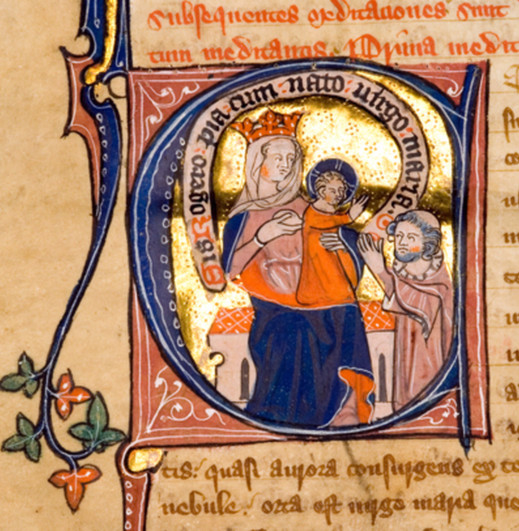 Subsequentes meditaciones sunt
tum meditantis. Prima medit
Sis orego pia cum nato uirgo maria
tis: quasi aurora consurgens ex te
nebule. orta est uirgo maria que